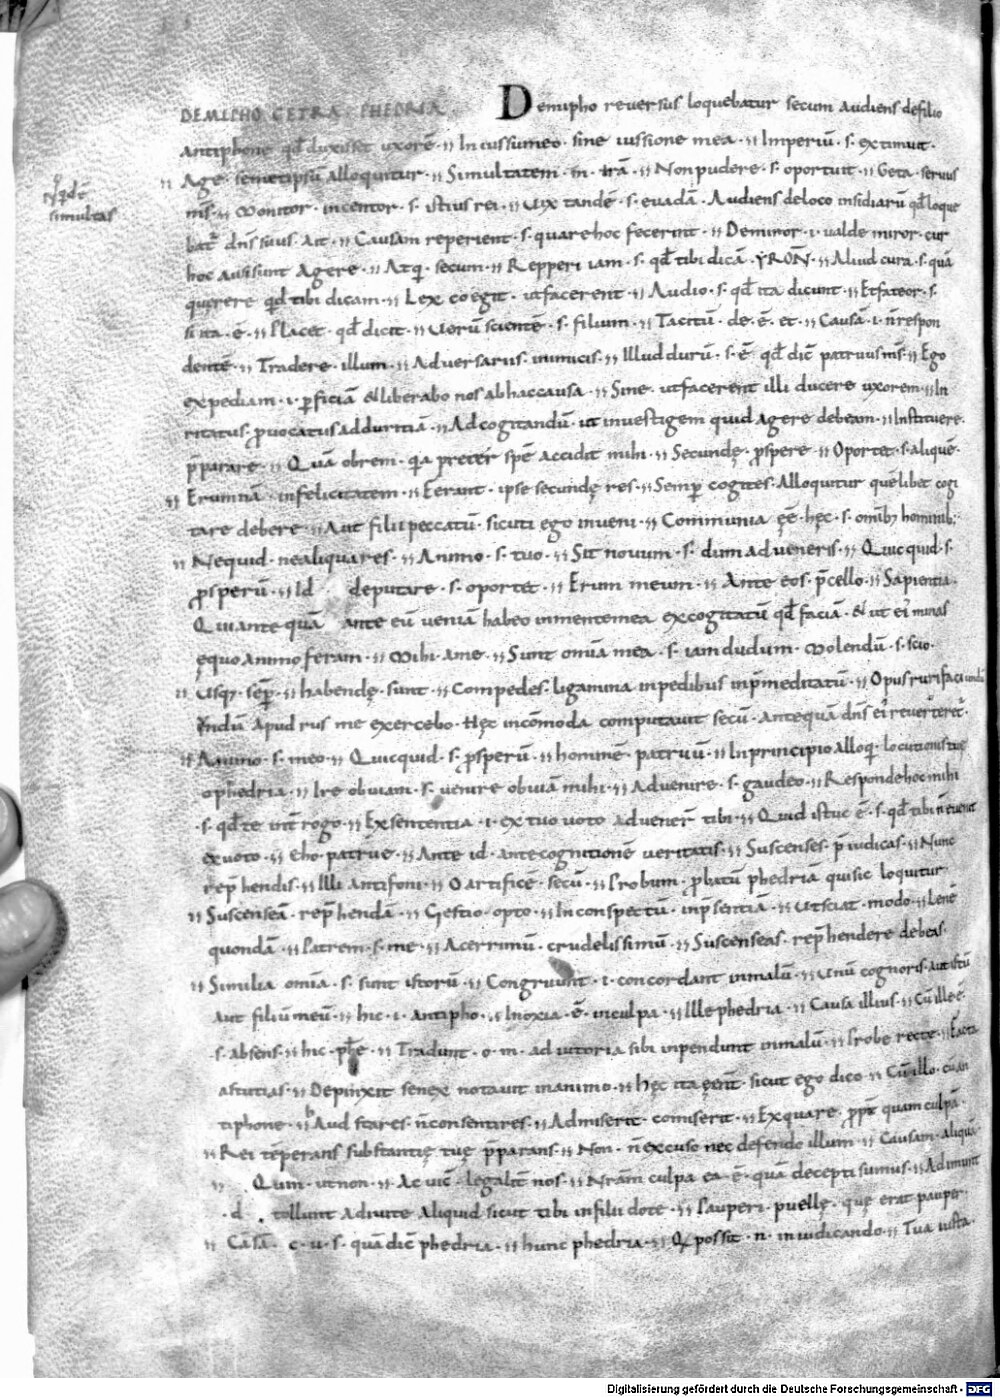 DEMIPHO GETRA PHEDRIA. Demipho reversus loquebatur secum audiens de filio
Antiphone qđ duxisset uxorē ·՛՛ In iussu meo · sine iussione mea ·՛՛ Imperiū · s · extimuit ·
՛՛ Age · semetipsū alloquitur ·՛՛ Simultatem · m · irā ·՛՛ Non pudere · s · oportuit ·՛՛ Geta · servus
simultas
mṡ ·՛՛ Monitor · incentor · s · istius rei ·՛՛ Vix tandē · s · evadā · Audiens de loco insidiarū qđ loque
bat᷑ dn̄s suus · ait ·՛՛ Causam reperient · s · quare hoc fecerint ·՛՛ Demiror · i · valde miror · cur
hoc ausi sunt agere ·՛՛ Atq · secum ·՛՛ Repperi iam · s · qđ tibi dicā · YRON̄ ·՛՛ Aliud cura · s · quā
querere qđ tibi dicam ·՛՛ Lex coegit · ut facerent ·՛՛ Audio · s · qđ ita dicunt ·՛՛ Et fateor · s ·
si ita · ē ·՛՛ Placet · qđ dicit ·՛՛ Verū scientē · s · filium ·՛՛ Tacitū · de · ē · et ·՛՛ Causā · i · n̄ respon
dentē ·՛՛ Tradere · illum ·՛՛ Adversariis · inimicis ·՛՛ Illud durū · s · ē · qđ dic̄ patruus mṡ ·՛՛ Ego
expediam · i · ꝑficiā & liberabo nos ab hac causa ·՛՛ Sine · ut facerent illi ducere uxorem ·՛՛ In
ritatus · ꝓvocatus ad duritiā ·՛՛ Ad cogitandū · ut investigem quid agere debeam ·՛՛ Instituere ·
p̄parare ·՛՛ Quā obrem · qa preter spē accidit mihi ·՛՛ Secundę · ꝓspere ·՛՛ Oportet · s · aliquē ·
՛՛ Erumnā · infelicitatem ·՛՛ Eerant · ipse secundę res ·՛՛ Semꝑ cogites · Alloquitur quēlibet cogi
tare debere ·՛՛ Aut filii peccatū · sicuti ego inveni ·՛՛ Communia eē · hęc · s · omībꝫ hominibꝫ
՛՛ Nequid · ne aliqua res ·՛՛ Animo · s · tuo ·՛՛ Sit novum · s · dum adveneris ·՛՛ Quicquid · s ·
ꝓsperū ·՛՛ Id deputare · s · oportet ·՛՛ Erum meum ·՛՛ Ante eos · p̄cello ·՛՛ Sapientia ·
Qui ante quā ante eū veniā habeo in mente mea excogitatū qđ faciā · & ut ei minas
equo animo feram ·՛՛ Mihi · a me ·՛՛ Sunt omīa mea · s · iamdudum · Molendū · s · scio ·
՛՛ Usqꝫ · seꝑ ·՛՛ habendę · sunt ·՛՛ Compedes · ligamina in pedibus inp̄meditatū ·՛՛ Opus ruri faciundū
Apud rus me exercebo · Hęc incōmoda computavit secū · antequā dn̄s ei᷑ reverteret᷑ ·
՛՛ Animo · s · meo ·՛՛ Quicquid · s · ꝓsperū ·՛՛ hominē · patruū ·՛՛ In principio alloq · locutionis tuę
o phedria ·՛՛ Ire obviam · s · venire obviā mihi ·՛՛ Advenire · s · gaudeo ·՛՛ Responde hoc mihi
· s · qđ te int̄rogo ·՛՛ Ex sententia · i · ex tuo voto advener̄ tibi ·՛՛ Quid istuc ē · s · qđ tibi n̄ evenit
ex voto ·՛՛ Eho · patrue ·՛՛ Ante id · ante cognitionē veritatis ·՛՛ Suscenses · p̄iudicas ·՛՛ Nunc
rep̄hendis ·՛՛ Illi antifoni ·՛՛ O artifice · secū ·՛՛ Probum · ꝓbatū phedriā qui sic loquitur
՛՛ Suscenseā · rep̄hendā ·՛՛ Gestio · opto ·՛՛ In conspectū · inp̄sentia ·՛՛ Ut sciat · modo ·՛՛ Lenē
quondā ·՛՛ Patrem · s · me ·՛՛ Acerrimū · crudelissimū ·՛՛ Suscenseas · rep̄hendere debeas ·
՛՛ Similia omīa · s · sunt istorū ·՛՛ Congruunt · i · concordant in malū ·՛՛ Unū cognoris · aut istū
aut filiū meū ·՛՛ hic · i · antipho ·՛՛ In noxia · ē · in culpa ·՛՛ Ille phedria ·՛՛ Causa illius ·՛՛ Cū ille ē
· s · absens ·՛՛ hic · phē ·՛՛ Tradunt · o · m · adiutoria sibi inpendunt in malū ·՛՛ Probe · recte ·՛՛ Facta
astutias ·՛՛ Depinxit senex notavit in animo ·՛՛ hęc ita eēnt · sicut ego dico ·՛՛ Cū illo · cū an
tiphone ·՛՛ Haud stares · n̄ consentires ·՛՛ Admiserit · cōmiserit ·՛՛ Ex qua re · ꝓpt̄ quam culpā ·
՛՛ Rei tēperans substantię tuę p̄parans ·՛՛ Non · n̄ excuso nec defendo illum ·՛՛ Causam · aliquā
՛՛ Qum · ut non ·՛՛ Ac vic̄ · legalit̄ nos ·՛՛ Nr̄am culpa ea · ē · quā decepti sumus ·՛՛ Adimunt
· d · tollunt a divite aliquid sicut tibi in filii dote ·՛՛ Pauperi · puellę · que erat pauper
՛՛ Casā · c · u · s · quā dic̄ phedria ·՛՛ hunc phedria ·՛՛ Q possit · n · in iudicando ·՛՛ Tua iusta ·
Digitalisierung gefördert durch die Deutsche Forschungsgemeinschaft - DFG